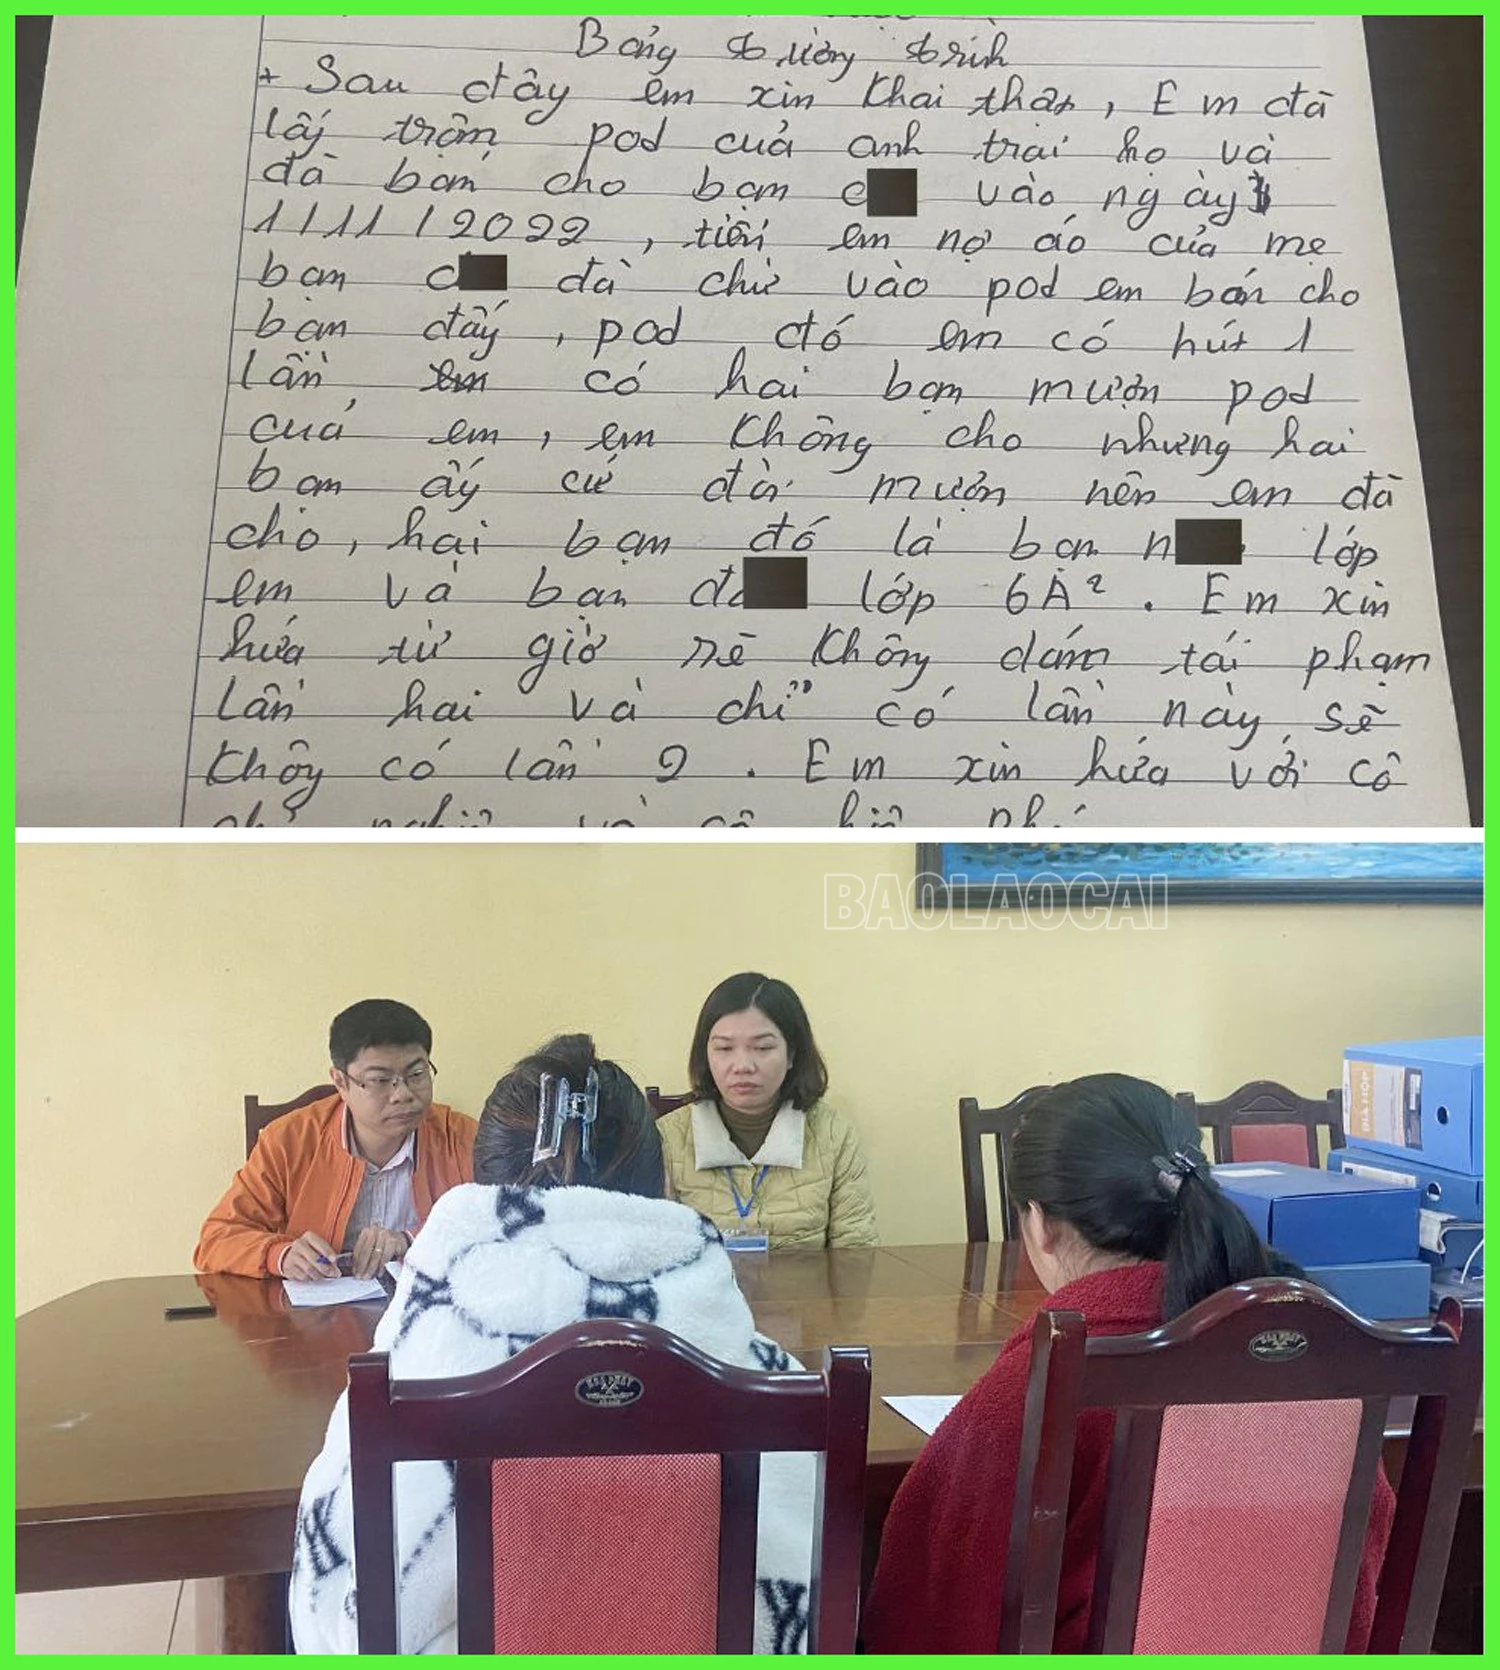 Bảng tường trình
+ Sau đây em xin khai thật, Em đã
lấy trộm pod của anh trai họ và
đã bán cho bạn c vào ngày
1/11/2022, tiền em nợ áo của mẹ
bạn c đã chừ vào pod em bán cho
bạn đấy, pod đó em có hút 1
lần có hai bạn mượn pod
của em, em không cho nhưng hai
bạn ấy cứ đòi mượn nên em đã
cho, hai bạn đó là bạn n lớp
em và bạn đ lớp 6A². Em xin
hứa từ giờ sẽ không dám tái phạm
lần hai và chỉ có lần này, sẽ
không có lần 2. Em xin hứa với cô
BAOLAOCAI